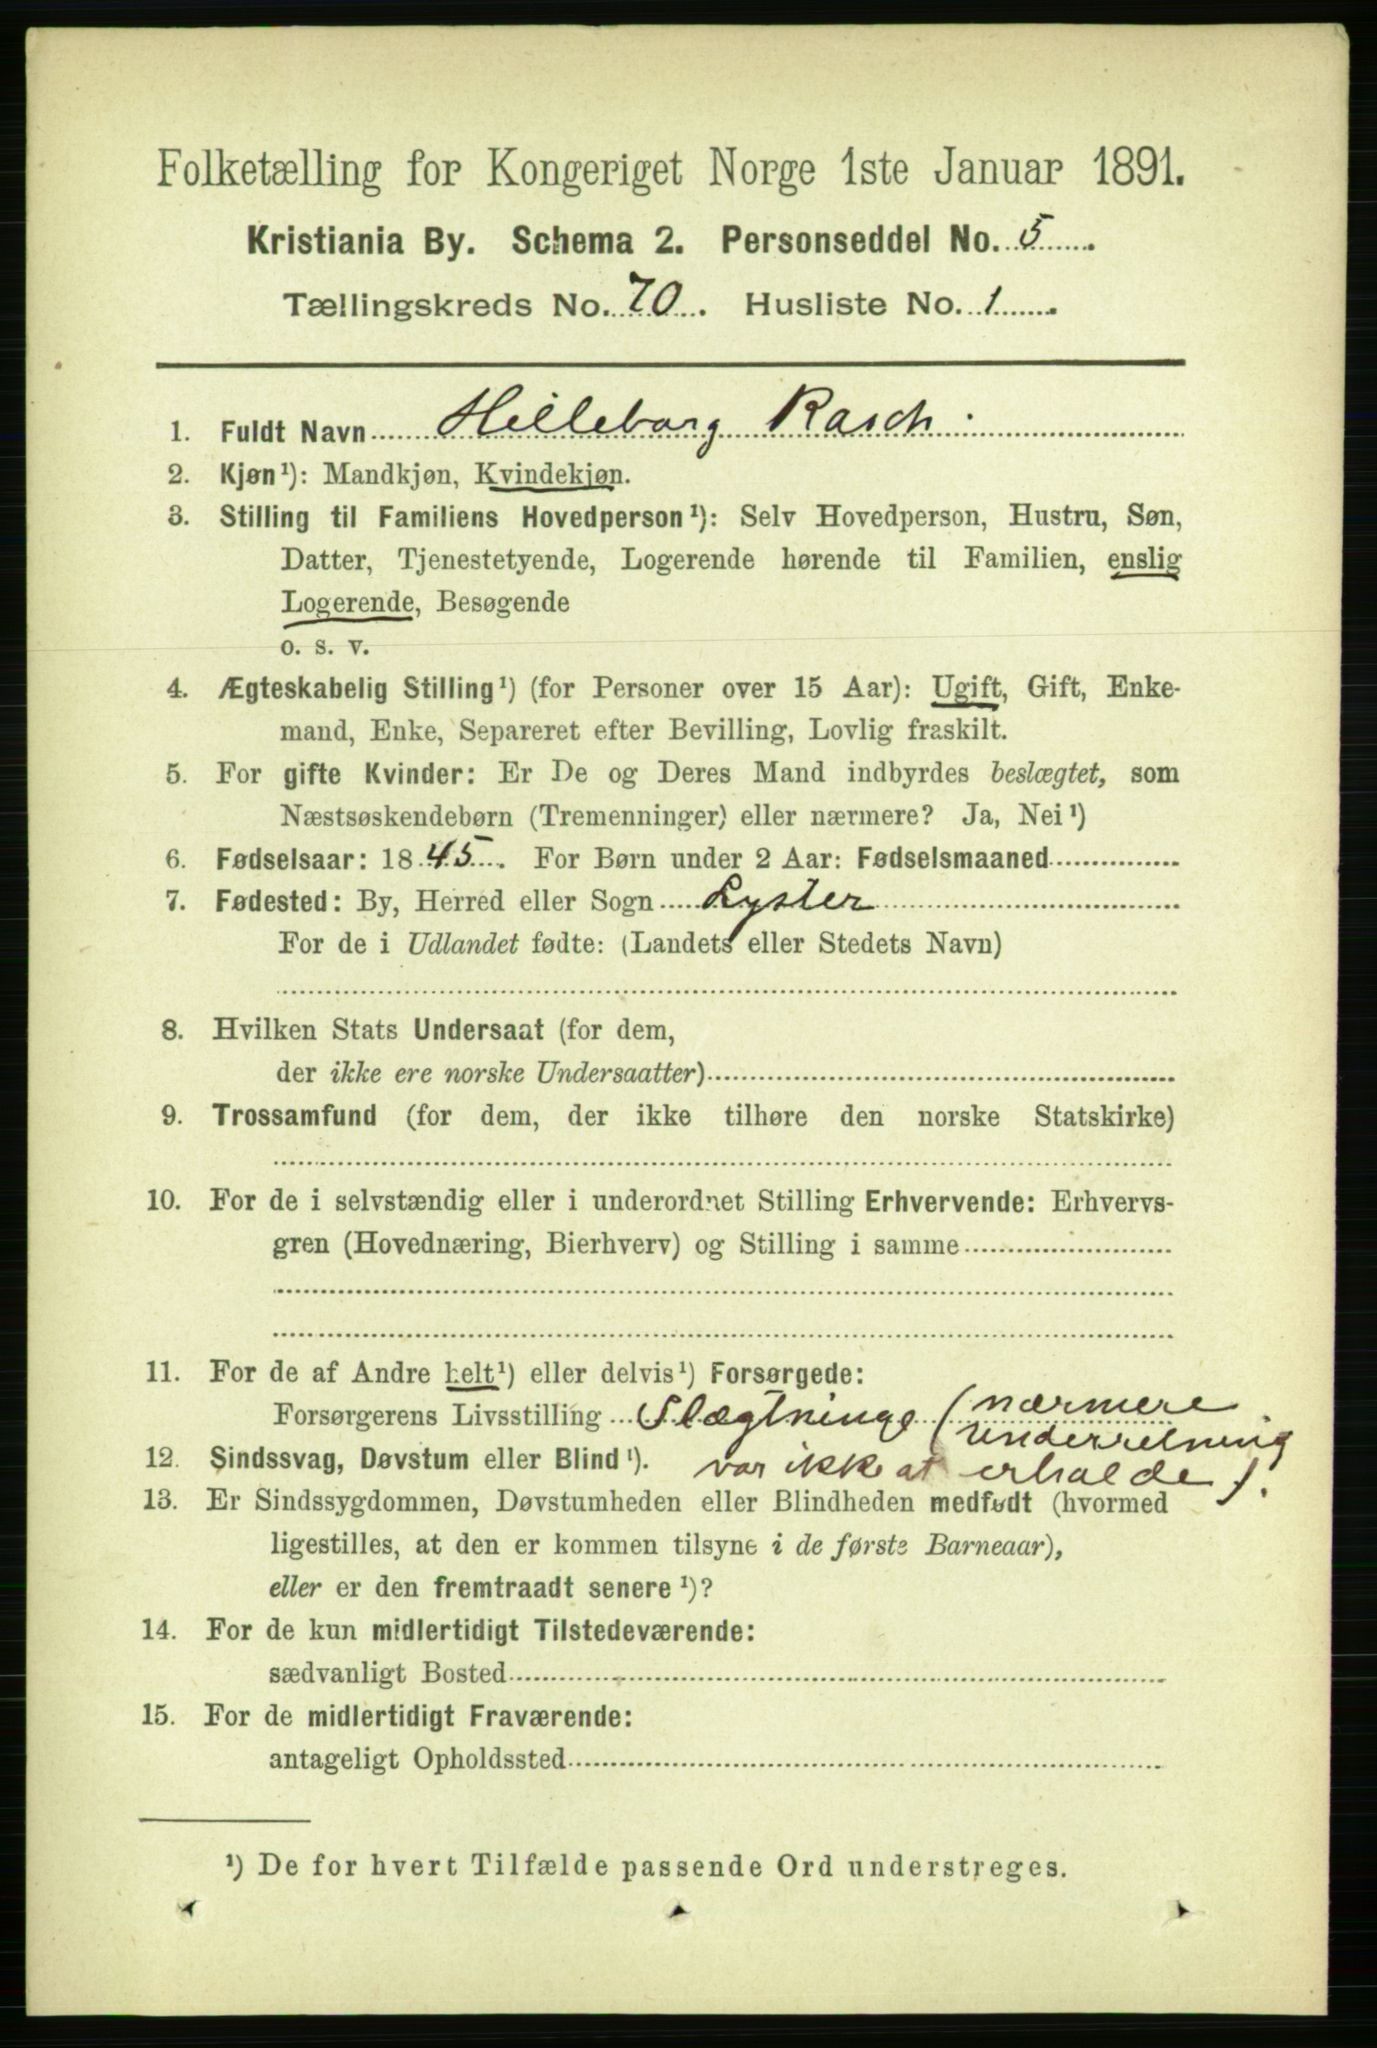 Folketælling for Kongeriget Norge 1ste Januar 1891.
Kristiania By. Schema 2. Personseddel No. 5.
Tællingskreds No. 70. Husliste No. 1.
1. Fuldt Navn Hilleborg Rasch.
2. Kjøn¹): Mandkjøn, Kvindekjøn.
3. Stilling til Familiens Hovedperson¹): Selv Hovedperson, Hustru, Søn,
Datter, Tjenestetyende, Logerende hørende til Familien, enslig
Logerende, Besøgende
o. s. v.
4. Ægteskabelig Stilling¹) (for Personer over 15 Aar): Ugift, Gift, Enke-
mand, Enke, Separeret efter Bevilling, Lovlig fraskilt.
5. For gifte Kvinder: Er De og Deres Mand indbyrdes beslægtet, som
Næstsøskendebørn (Tremenninger) eller nærmere? Ja, Nei¹)
6. Fødselsaar: 1845. For Børn under 2 Aar: Fødselsmaaned
7. Fødested: By, Herred eller Sogn Lyster
For de i Udlandet fødte: (Landets eller Stedets Navn)
8. Hvilken Stats Undersaat (for dem,
der ikke ere norske Undersaatter)
9. Trossamfund (for dem, der ikke tilhøre den norske Statskirke)
10. For de i selvstændig eller i underordnet Stilling Erhvervende: Erhvervs-
gren (Hovednæring, Bierhverv) og Stilling i samme
11. For de af Andre helt¹) eller delvis¹) Forsørgede:
Forsørgerens Livsstilling Slægtninge (nærmere
underretning
12. Sindssvag, Døvstum eller Blind¹). var ikke at erholde).
13. Er Sindssygdommen, Døvstumheden eller Blindheden medfødt (hvormed
ligestilles, at den er kommen tilsyne i de første Barneaar),
eller er den fremtraadt senere¹)?
14. For de kun midlertidigt Tilstedeværende:
sædvanligt Bosted
15. For de midlertidigt Fraværende:
antageligt Opholdssted
¹) De for hvert Tilfælde passende Ord understreges.